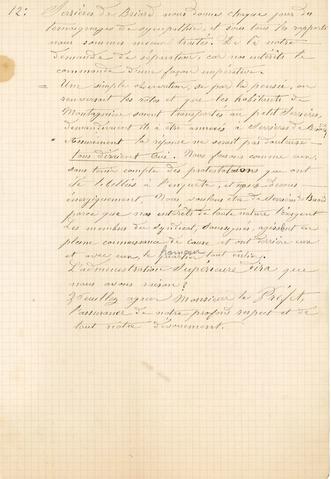 12: Serrières de Briord nous donne chaque jour des
témoignages de sympathie, et sous tous les rapports
nous sommes mieux traités. De là notre
demande de séparation, car nos intérêts la
commande d'une façon impérative.
= Une simple observation, si par la pensée, on
renversait les rôles et que les habitants de
Montagnieu soient transportés au petit Serrières,
demanderaient ils à être annexés à Serrières de Briord
Assurément la réponse ne serait pas douteuse
tous diraient Oui. Nous faisons comme eux,
sans tenir compte des protestations que ont
de libellées à l'enquête, et nous disons
énergiquement, Nous voulons être de Serrières de Briord
parce que nos intérêts de toute nature l'exigent
Les membres du syndicat, soussignés, agissent en
pleine connaissance de cause et ont derrière eux
et avec eux, le hameau tout entier.
L'administration Supérieure dira que
nous avons raison?
Veuillez agréer Monsieur le Préfet,
l'assurance de notre profond respect et de
tout notre dévouement.